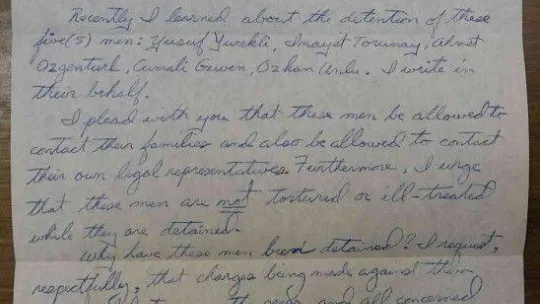 Recently I learned about the detention of these
five (5) men: Yusuf Yurekli, Inayet Torunay, Ahmet
Ozgenturk, Cumali Guven, Ozhan Unlu. I write in
their behalf.
I plead with you that these men be allowed to
contact their families and also be allowed to contact
their own legal representatives. Furthermore, I urge
that these men are not tortured or ill-treated
while they are detained.
Why have these men been detained? I request,
respectfully, that charges being made against them
and all concerned